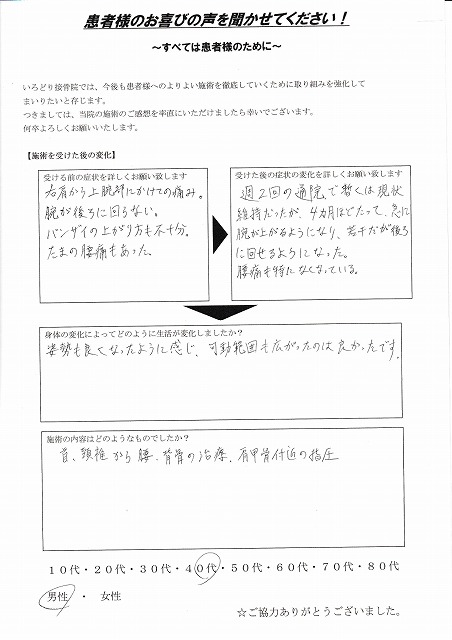 患者様のお喜びの声を聞かせてください！
～すべては患者様のために～
いろどり接骨院では、今後も患者様へのよりよい施術を徹底していくために取り組みを強化して
まいりたいと存じます。
つきましては、当院の施術のご感想を率直にいただけましたら幸いでございます。
何卒よろしくお願いいたします。
【施術を受けた後の変化】
受ける前の症状を詳しくお願い致します
右肩から上腕部にかけての痛み。
腕が後ろに回らない。
バンザイの上がり方も不十分。
たまの腰痛もあった。
受けた後の症状の変化を詳しくお願い致します
週2回の通院で暫くは現状
維持だったが、4カ月ほどたって、急に
腕が上がるようになり、若干だが後ろ
に回せるようになった。
腰痛も特になくなっている。
身体の変化によってどのように生活が変化しましたか？
姿勢も良くなったように感じ、可動範囲も広がったのは良かったです。
施術の内容はどのようなものでしたか？
首、頸椎から腰、背骨の治療、肩甲骨付近の指圧
１０代・２０代・３０代・４０代・５０代・６０代・７０代・８０代
男性 ・ 女性
☆ご協力ありがとうございました。